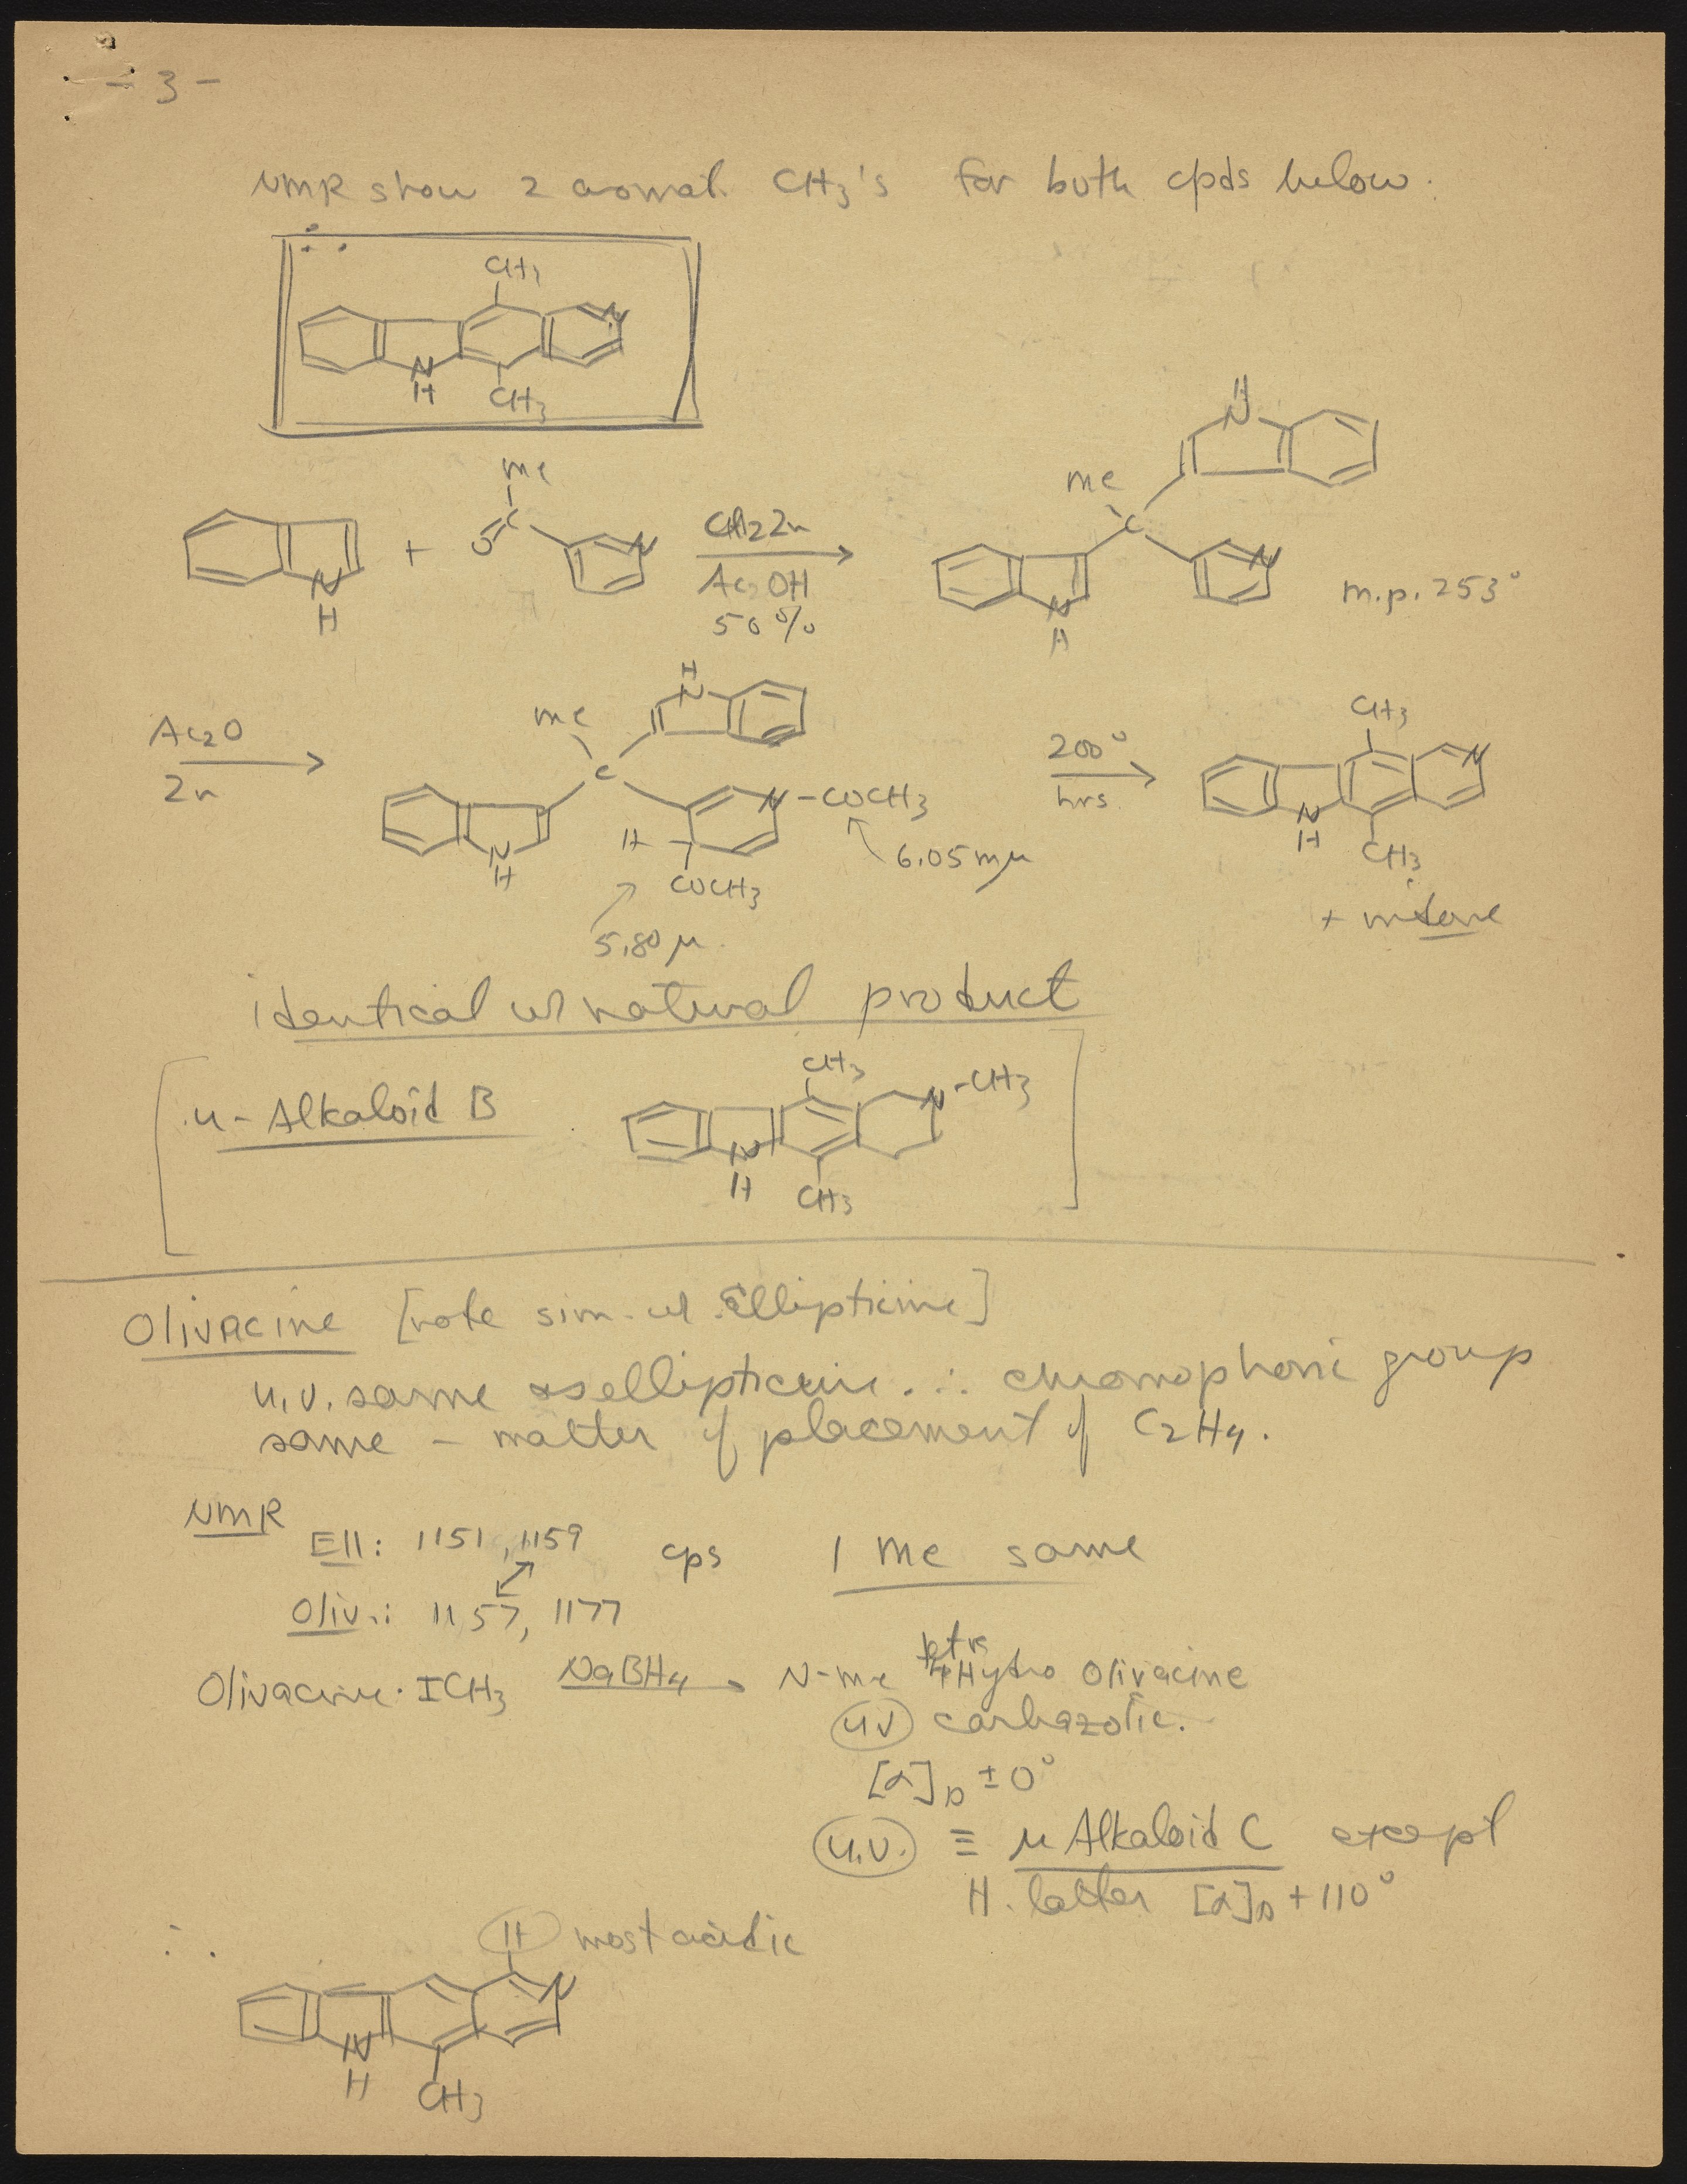 - 3 -
NMR show 2 aromat. CH3's for both cpds below.
∴
CH3
N
N
H
CH3
Me
C
O
N
+
N
H
ZnCl2
AcOH
50%
H
N
Me
C
N
N
H
m.p. 253°
Ac2O
Zn
H
N
Me
C
N-COCH3
H
N
H
COCH3
6.05 mµ
5.80 µ
200°
hrs.
CH3
N
N
H
CH3
+ indole
identical w/ natural product
u-Alkaloid B
CH3
N-CH3
N
H
CH3
Olivacine [note sim. w/ Ellipticine]
u.v. same as ellipticine. ∴ chromophoric group
same - matter of placement of C2H4.
NMR
Ell: 1151, 1159 cps 1 Me same
Oliv.: 1157, 1177
Olivacine·ICH3 NaBH4 N-Me tetra Hydro Olivacine
uv carbazolic.
[α]D ±0°
u.v. ≡ µ Alkaloid C except
H. latter [α]D +110°
∴ H most acidic
N
N
H
CH3